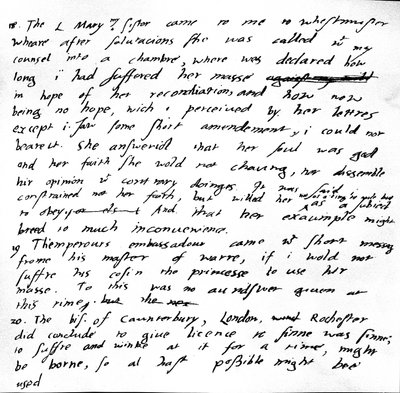 18. The L Mary my sister came to me to whestmuster
wheare after salutacions she was called wt my
counsel into a chambre, where was declared how
long i had suffered her masse against my will
in hope of her reconsiliation, and how now
being no hope, wich i perceived by her lettres
except i saw some short amendement, i could not
beare it. She answerid that her soul was god
and her faith she wold not chaung, nor dissemble
hir opinion wt contrary doinges. It was said
constrained not her faith, but willed her not as a king to rule but
as a subject
to obey. And that her exaumple might
breed to much inconvenience.
19 Themperours embassadour came wt short message
frome his master of warre, if i wold not
suffre his cosin the princesse to use her
masse. To this was no aunswer given at
this time, but the
20. The bis. of Caunterbury, London, Rochester
did conclude to give licence to sinne was sinne;
to suffre and winke at it for a time, might
be borne, so al hast possible might bee
used